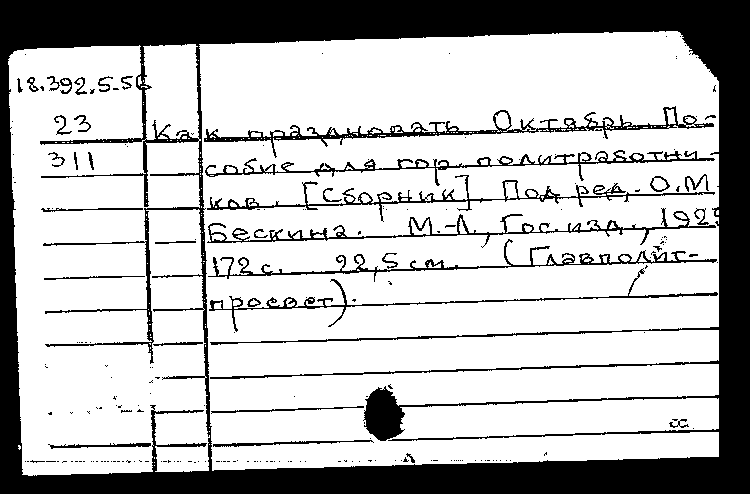 18.392.5-56
23
311
Как праздновать Октябрь. По-
собие для гор. политработни-
ков. [Сборник]. Под ред. О.М.
Бескина. М.-Л., Гос. изд.,
172 с. 22,5 см. (Главполит-
просвет).